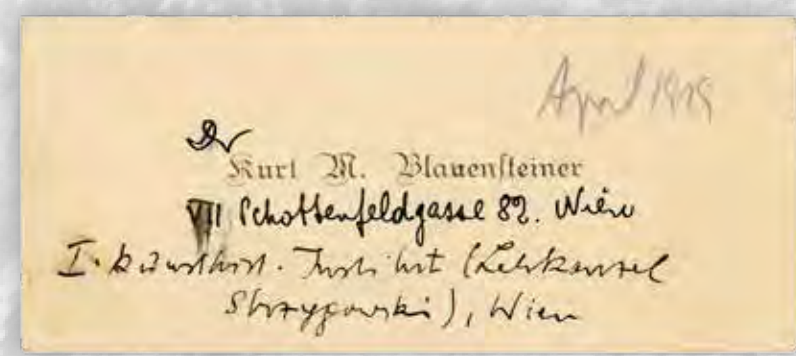 April 1919
Dr
Kurt M. Blauensteiner
VII Schottenfeldgasse 82. Wien
I. kunsthist. Institut (Lehrkanzel
Strzygowski), Wien